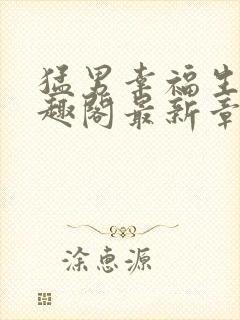 猛男幸福生
趣阁最新章
涂惠源